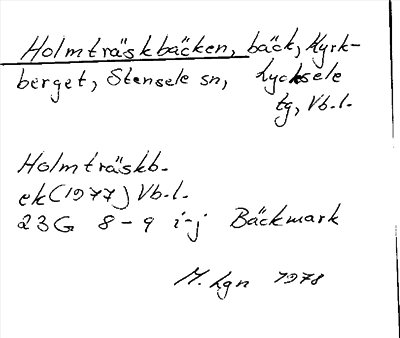 Holmträskbäcken, bäck, Kyrk-
berget, Stensele sn, Lycksele
tg, Vb.l.
Holmträskb.
ek (1977) Vb.l.
23G 8-9 i-j Bäckmark
M. Lgn 1978